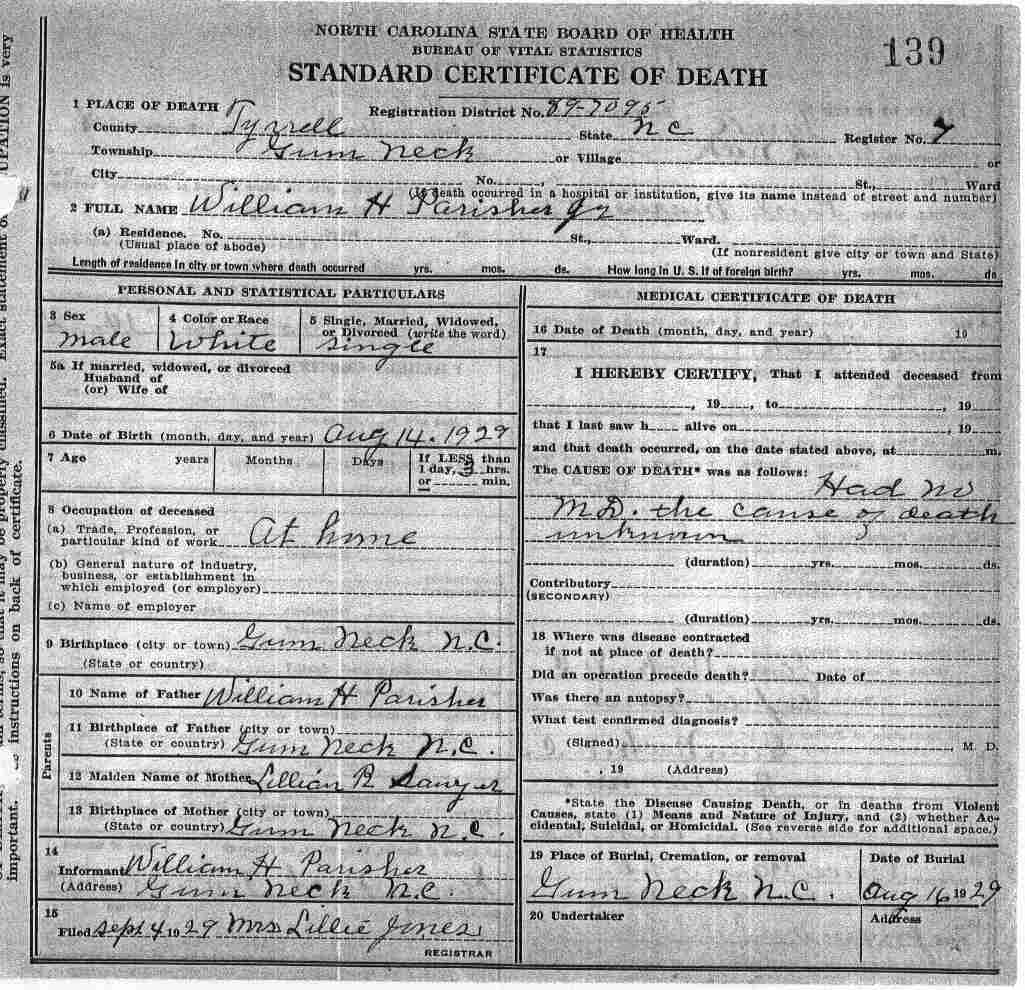 NORTH CAROLINA STATE BOARD OF HEALTH
BUREAU OF VITAL STATISTICS
139
STANDARD CERTIFICATE OF DEATH
1 PLACE OF DEATH
Registration District No. 89-7095
County Tyrrell State N C Register No. 7
Township Gum Neck or Village or
City No. , St., Ward
(If death occurred in a hospital or institution, give its name instead of street and number)
2 FULL NAME William H Parisher Jr
(a) Residence. No. St., Ward.
(Usual place of abode) (If nonresident give city or town and State)
Length of residence in city or town where death occurred yrs. mos. ds. How long in U. S. if of foreign birth? yrs. mos. ds
PERSONAL AND STATISTICAL PARTICULARS
3 Sex 4 Color or Race 5 Single, Married, Widowed,
or Divorced (write the word)
Male White Single
5a If married, widowed, or divorced
Husband of
(or) Wife of
6 Date of Birth (month, day, and year) Aug 14. 1929
7 Age years Months Days If LESS than
1 day, 3 hrs.
or min.
8 Occupation of deceased
(a) Trade, Profession, or
particular kind of work At home
(b) General nature of industry,
business, or establishment in
which employed (or employer)
(c) Name of employer
9 Birthplace (city or town) Gum Neck N.C.
(State or country)
Parents
10 Name of Father William H Parisher
11 Birthplace of Father (city or town)
(State or country) Gum Neck N.C.
12 Maiden Name of Mother Lillian R Sawyer
13 Birthplace of Mother (city or town)
(State or country) Gum Neck N.C.
14
Informant William H Parisher
(Address) Gum Neck N.C.
15
Filed Sept 4 1929 Mrs Lillie Jones
REGISTRAR
MEDICAL CERTIFICATE OF DEATH
16 Date of Death (month, day, and year) 19
17
I HEREBY CERTIFY, That I attended deceased from
, 19 , to , 19
that I last saw h alive on , 19
and that death occurred, on the date stated above, at m.
The CAUSE OF DEATH* was as follows:
Had no
M.D. the cause of death
unknown
(duration) yrs. mos. ds.
Contributory
(SECONDARY)
(duration) yrs. mos. ds.
18 Where was disease contracted
if not at place of death?
Did an operation precede death? Date of
Was there an autopsy?
What test confirmed diagnosis?
(Signed) , M. D.
, 19 (Address)
*State the Disease Causing Death, or in deaths from Violent
Causes, state (1) Means and Nature of Injury, and (2) whether Ac-
cidental, Suicidal, or Homicidal. (See reverse side for additional space.)
19 Place of Burial, Cremation, or removal Date of Burial
Gum Neck N.C. Aug 16 1929
20 Undertaker Address
UPATION is very
Exact statement
classified.
be properly
so that it may
instructions on back of certificate.
important.